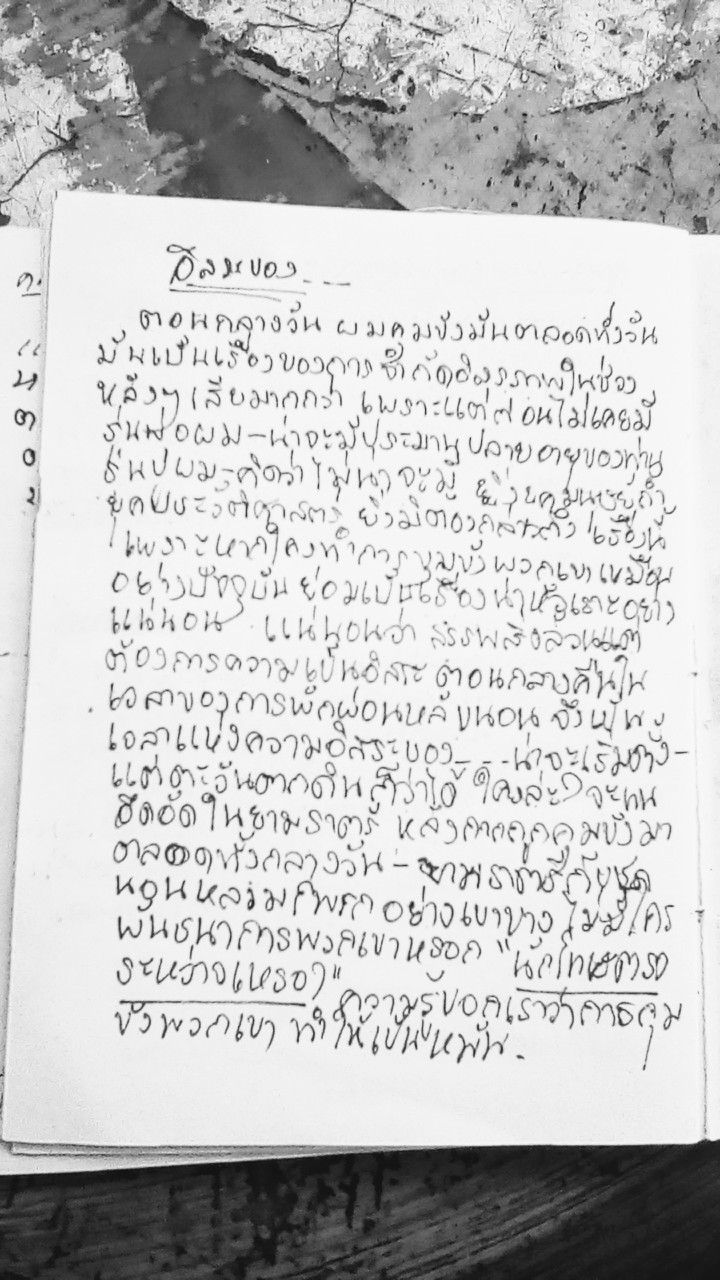 อิสระของ...
ตอนกลางวัน ผมคุมขังมันตลอดทั้งวัน
มันเป็นเรื่องของการจำกัดอิสรภาพในช่วง
หลังๆ เสียมากกว่า เพราะแต่ก่อนไม่เคยมี
รุ่นพ่อผม-น่าจะมีประมาณปลายอายุของท่าน
รุ่นปู่ผม-คิดว่าไม่น่าจะมี ยิ่งยุคมนุษย์ถ้ำ
ยุคประวัติศาสตร์ ยิ่งมิต้องกล่าวถึง เรื่องนี้
เพราะหากใครทำการคุมขังพวกเขาเหมือน
อย่างปัจจุบัน ย่อมเป็นเรื่องน่าหัวเราะอย่าง
แน่นอน แน่นอนว่า สรรพสิ่งล้วนแต่
ต้องการความเป็นอิสระ ตอนกลางคืนใน
เวลาของการพักผ่อนหลับนอน จึงเป็น
เวลาแห่งความอิสระของ...น่าจะเริ่มตั้ง-
แต่ตะวันตกดินก็ว่าได้ ใครล่ะ? จะทน
อึดอัดในยามราตรี หลังจากถูกคุมขังมา
ตลอดทั้งกลางวัน- ยามราตรี
นอนหลวมๆ อย่างเบาบาง ไม่มีใคร
พันธนาการพวกเขาหรอก "นักโทษ
ระหว่างเหรอ?" ความรู้บอกเราว่าการคุม
ขังพวกเขา ทำให้เป็นหมัน.